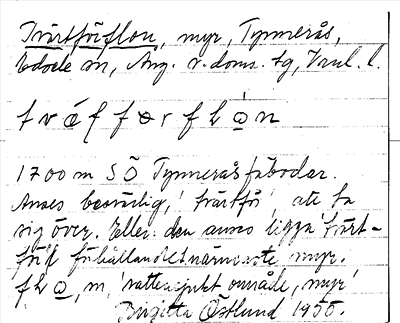 Tvärtförflon, myr, Tynnerås,
Edsele sn, Ång. v. doms. tg, Vnl. l.
1700 m SÖ Tynneråsfäbodar.
Anses besvärlig, 'tvärtför' att ta
sig över. Eller den anses ligga 'tvärt-
för' i förhållande närmaste myr.
m, 'vattensjukt område, myr'
Birgitta Östlund 1955.